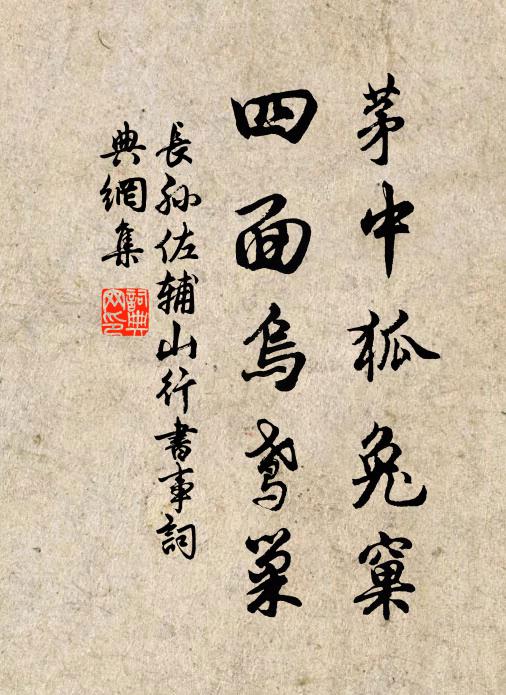 茅中狐兔窠
四面烏鳶巢
長孙佐辅山行書事詞
典網集
詞典網印